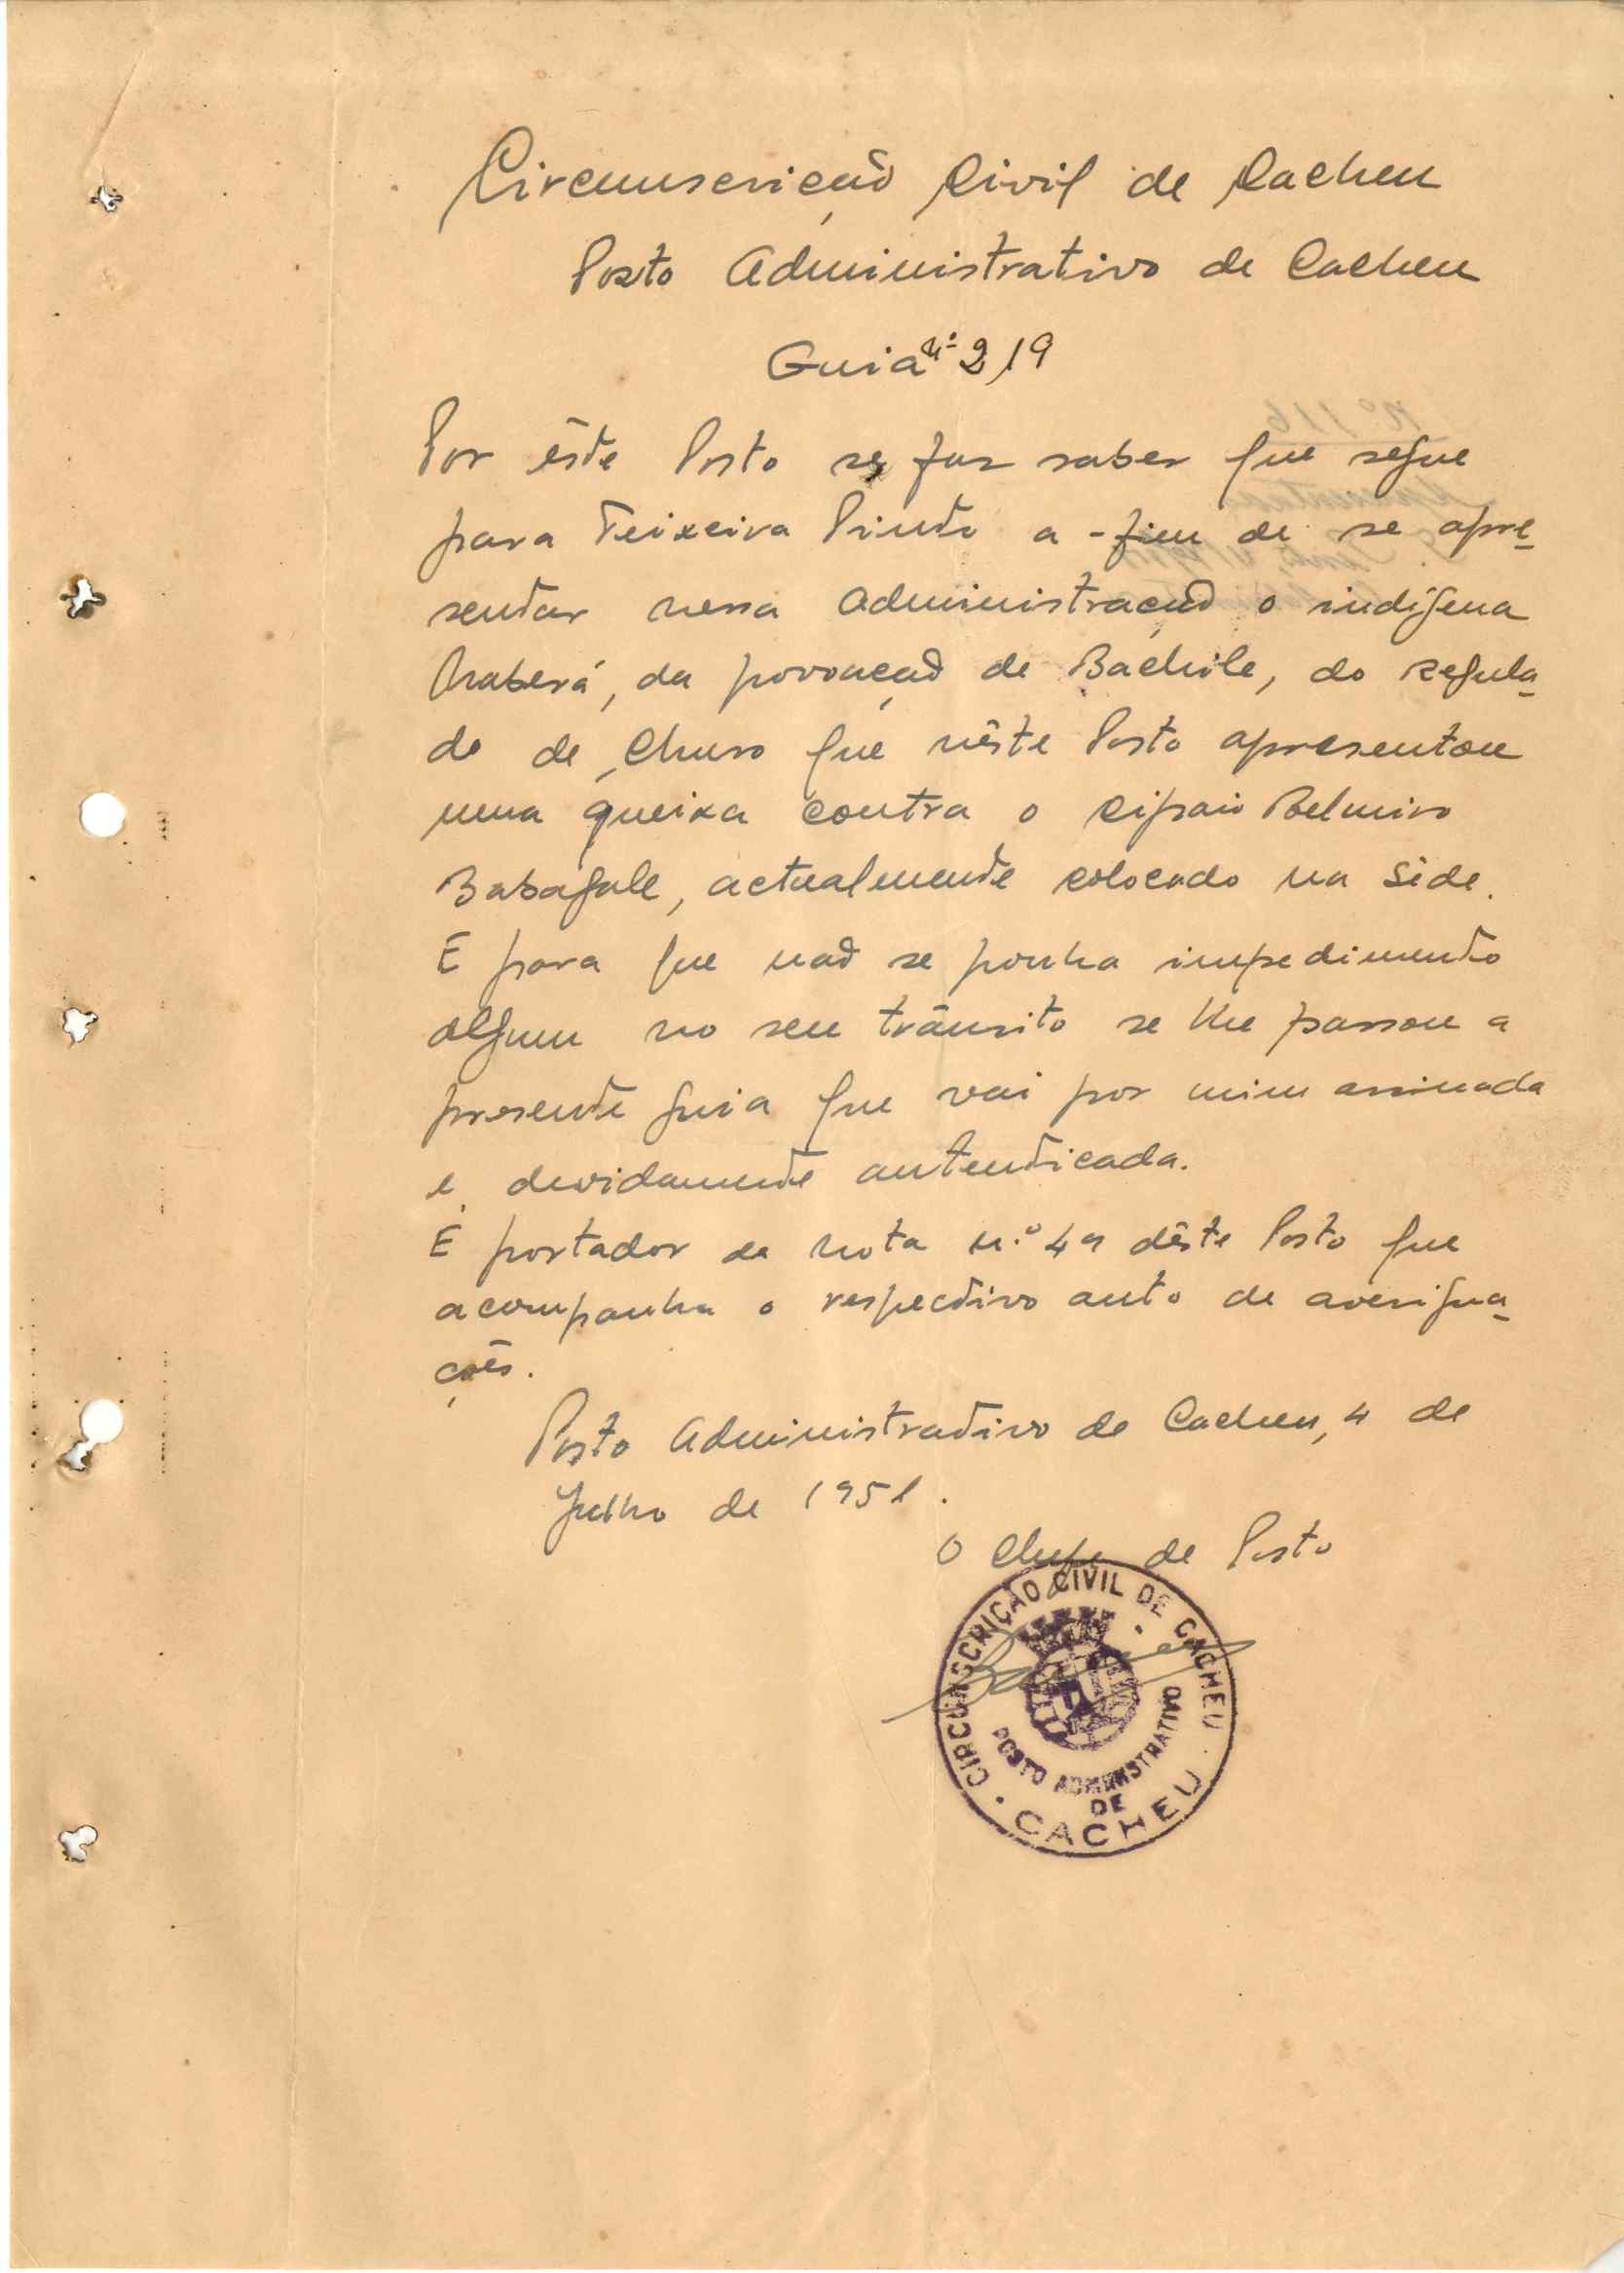 Circunscrição Civil de Cacheu
Posto Administrativo de Cacheu
Guia nº 219
Por êste Posto se faz saber que segue
para Teixeira Pinto a-fim de se apre-
sentar nessa Administração o indígena
da povoação de Bachile, do regula-
do de Churo que nêste Posto apresentou
uma queixa contra o cipaio Belmiro
Babagale, actualmente colocado na Séde.
E para que não se ponha impedimento
algum no seu trânsito se lhe passou a
presente guia que vai por mim assinada
e devidamente autenticada.
É portador da nota n.º deste Posto que
acompanha o respectivo auto de averigua-
ções.
Posto Administrativo de Cacheu, 4 de
Julho de 1951.
O Chefe de Posto
CIRCUNSCRIÇÃO CIVIL DE CACHEU
POSTO ADMINISTRATIVO
DE
CACHEU